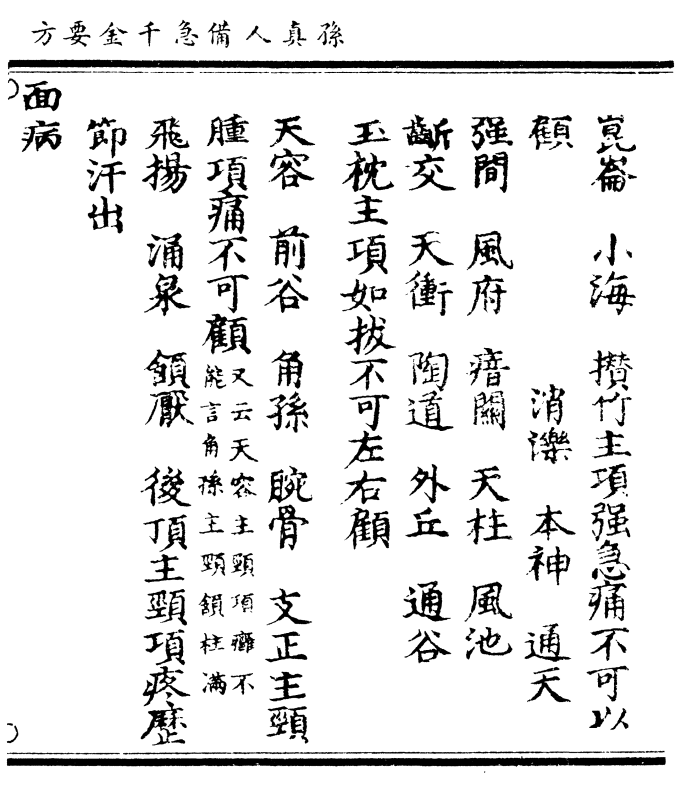 孫真人備急千金要方
崑崙 小海 攅竹主項强急痛不可以
顧 消濼 本神 通天
强間 風府 瘖關 天柱 風池
齗交 天衝 陶道 外丘 通谷
玉枕主項如拔不可左右顧
天容 前谷 角孫 腕骨 支正主頸
腫項痛不可顧
又云天容主頸項癰不
能言角孫主頸頷柱滿
飛揚 涌泉 頷厭 後頂主頸項疼歷
節汗出
面病